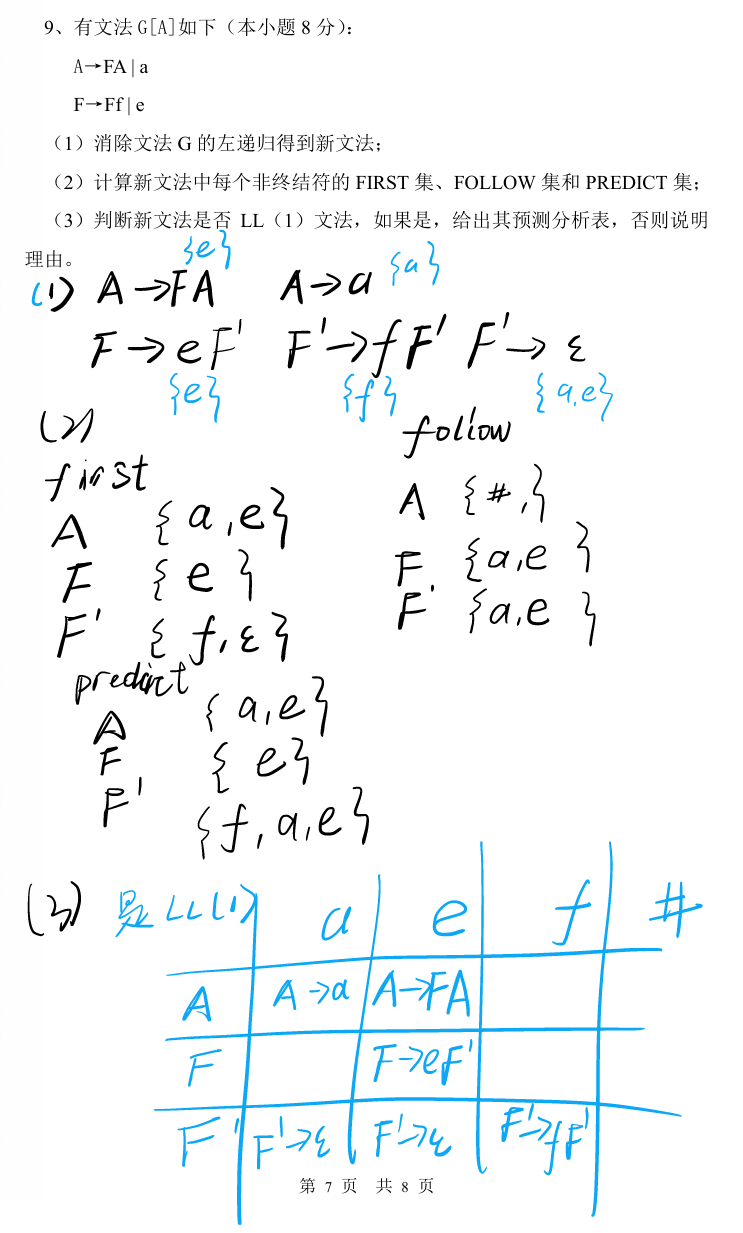 9、有文法 G[A]如下（本小题 8 分）：
A→FA | a
F→Ff | e
（1）消除文法 G 的左递归得到新文法；
（2）计算新文法中每个非终结符的 FIRST 集、FOLLOW 集和 PREDICT 集；
（3）判断新文法是否 LL（1）文法，如果是，给出其预测分析表，否则说明
理由。
{e} {a}
(1) A→FA A→a
F→eF' F'→fF' F'→ε
{e} {f} {a,e}
(2)
first
A {a,e}
F {e}
F' {f,ε}
follow
A {#,}
F {a,e }
F' {a,e }
predict
A {a,e}
F {e}
F' {f,a,e}
(3) 是LL(1) a e f #
A A→a A→FA
F F→eF'
F' F'→ε F'→ε F'→fF'
第 7 页 共 8 页